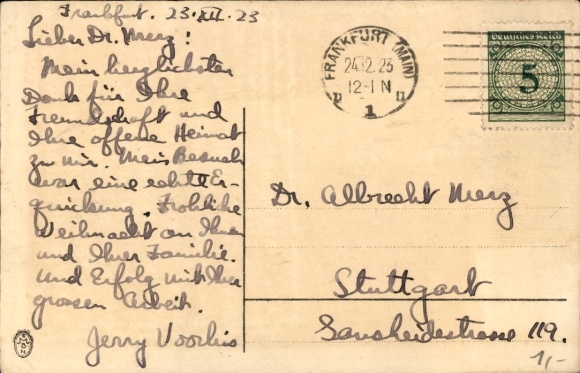 Frankfurt. 23.XII.23
Lieber Dr. Merz:
Mein herzlichsten
Dank für Ihre
Freundschaft und
Ihre offene Heimat
zu mir. Mein Besuch
war eine echte Er-
quickung. Frohliche
Weihnacht an Ihnen
und Ihrer Familie.
Und Erfolg mit Ihre
grossen Arbeit.
Jerry Voorhis
FRANKFURT (MAIN)
24.12.23
12-1 N
1
Deutsches Reich
5
Dr. Albrecht Merz
Stuttgart
Sansheidestrasse 119.
1,-